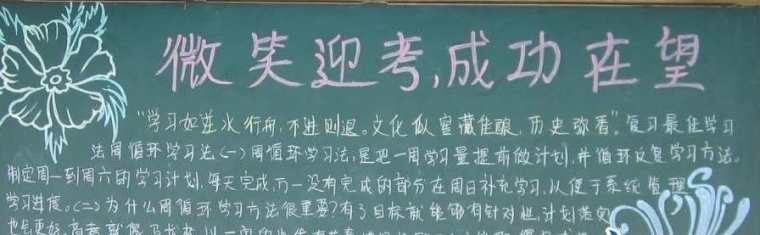 微笑迎考,成功在望
"学习如逆水行舟,不进则退。文化似窖藏佳酿,历史弥香"。复习最佳学习
法周循环学习法(一)周循环学习法,是把一周学习量提前做计划,并循环反复学习方法。
制定周一到周六的学习计划,每天完成,万一没有完成的部分在周日补充学习,以便于系统管理
学习进度。(二)为什么周循环学习方法很重要?有了目标就能够有针对性,计划落实
也是更好,高考就像马拉松